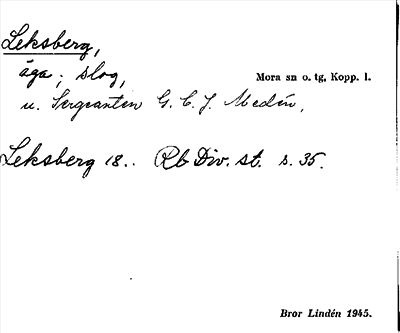 Leksberg,
äga; skog,
Mora sn o. tg, Kopp. l.
u. Sergeanten G. C. J. Medin,
Leksberg 18.. Rb Div. st. s. 35.
Bror Lindén 1945.